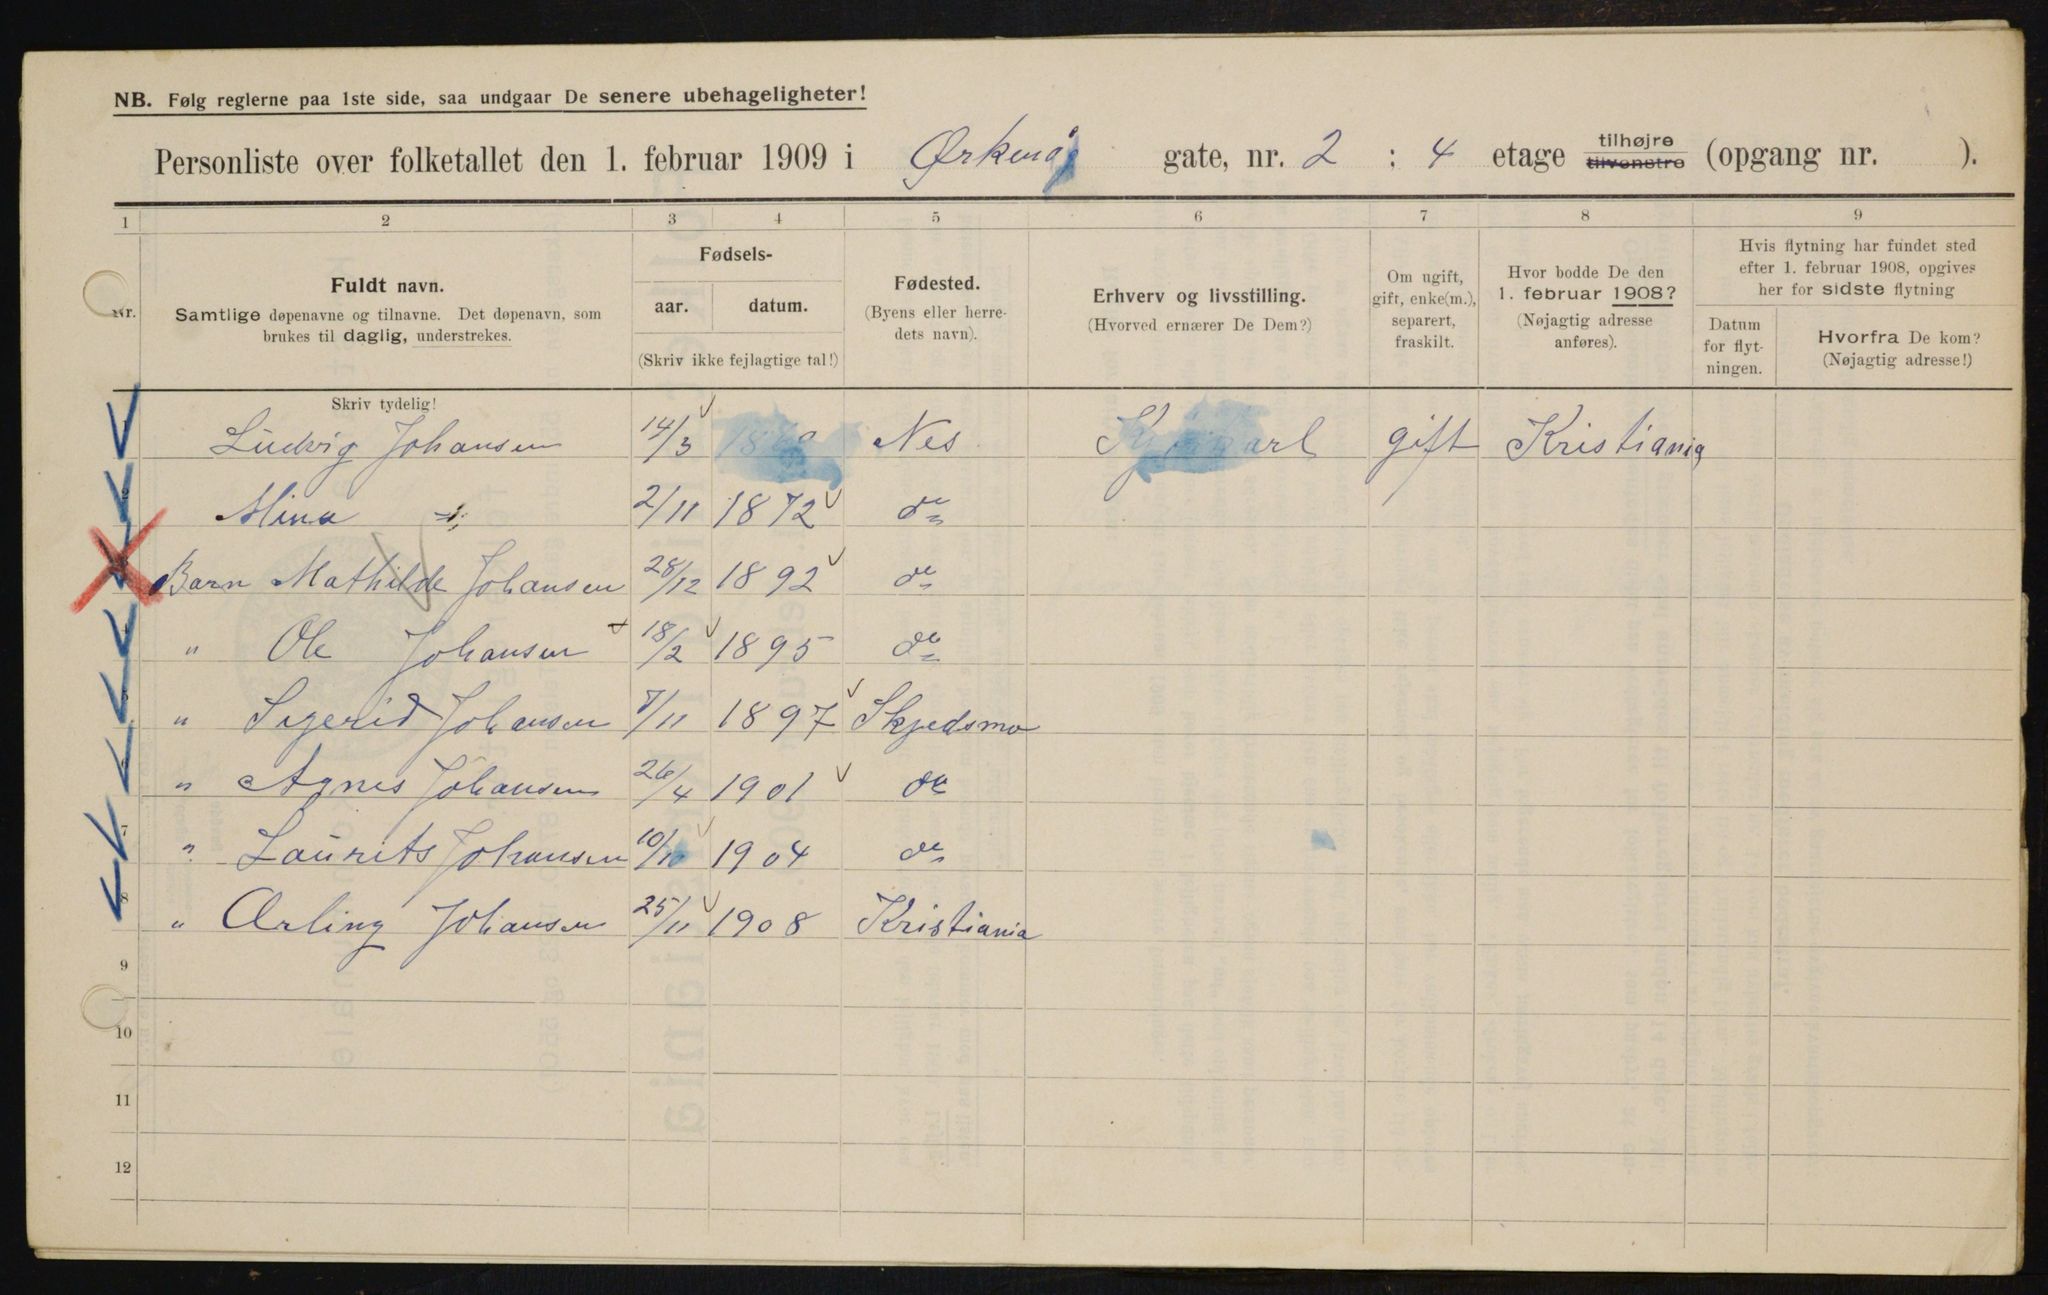 NB. Følg reglerne paa 1ste side, saa undgaar De senere ubehageligheter!
Personliste over folketallet den 1. februar 1909 i Ørkenög gate, nr. 2 ; 4 etage tilhøjre tilvenstre (opgang nr. ).
1 2 3 4 5 6 7 8 9
Nr.
Fuldt navn.
Samtlige døpenavne og tilnavne. Det døpenavn, som
brukes til daglig, understrekes.
Fødsels-
aar. datum.
(Skriv ikke fejlagtige tal!)
Fødested.
(Byens eller herre-
dets navn).
Erhverv og livsstilling.
(Hvorved ernærer De Dem?)
Om ugift,
gift, enke(m.),
separert,
fraskilt.
Hvor bodde De den
1. februar 1908?
(Nøjagtig adresse
anføres).
Hvis flytning har fundet sted
efter 1. februar 1908, opgives
her for sidste flytning
Datum
for flyt-
ningen.
Hvorfra De kom?
(Nøjagtig adresse!)
Skriv tydelig!
Ludvig Johansen 14/3 Nes gift Kristiania
2 Mina 2/11 1872 do
Barn Mathilde Johansen 28/12 1892 do
4 " Ole Johansen 18/2 1895 do
5 " Sigerid Johansen 7/11 1897 Skjedsmo
6 " Agnes Johansen 26/4 1901 do
7 " Laurits Johansen 10/10 1904 do
8 " Ørling Johansen 25/11 1908 Kristiania
9
10
11
12